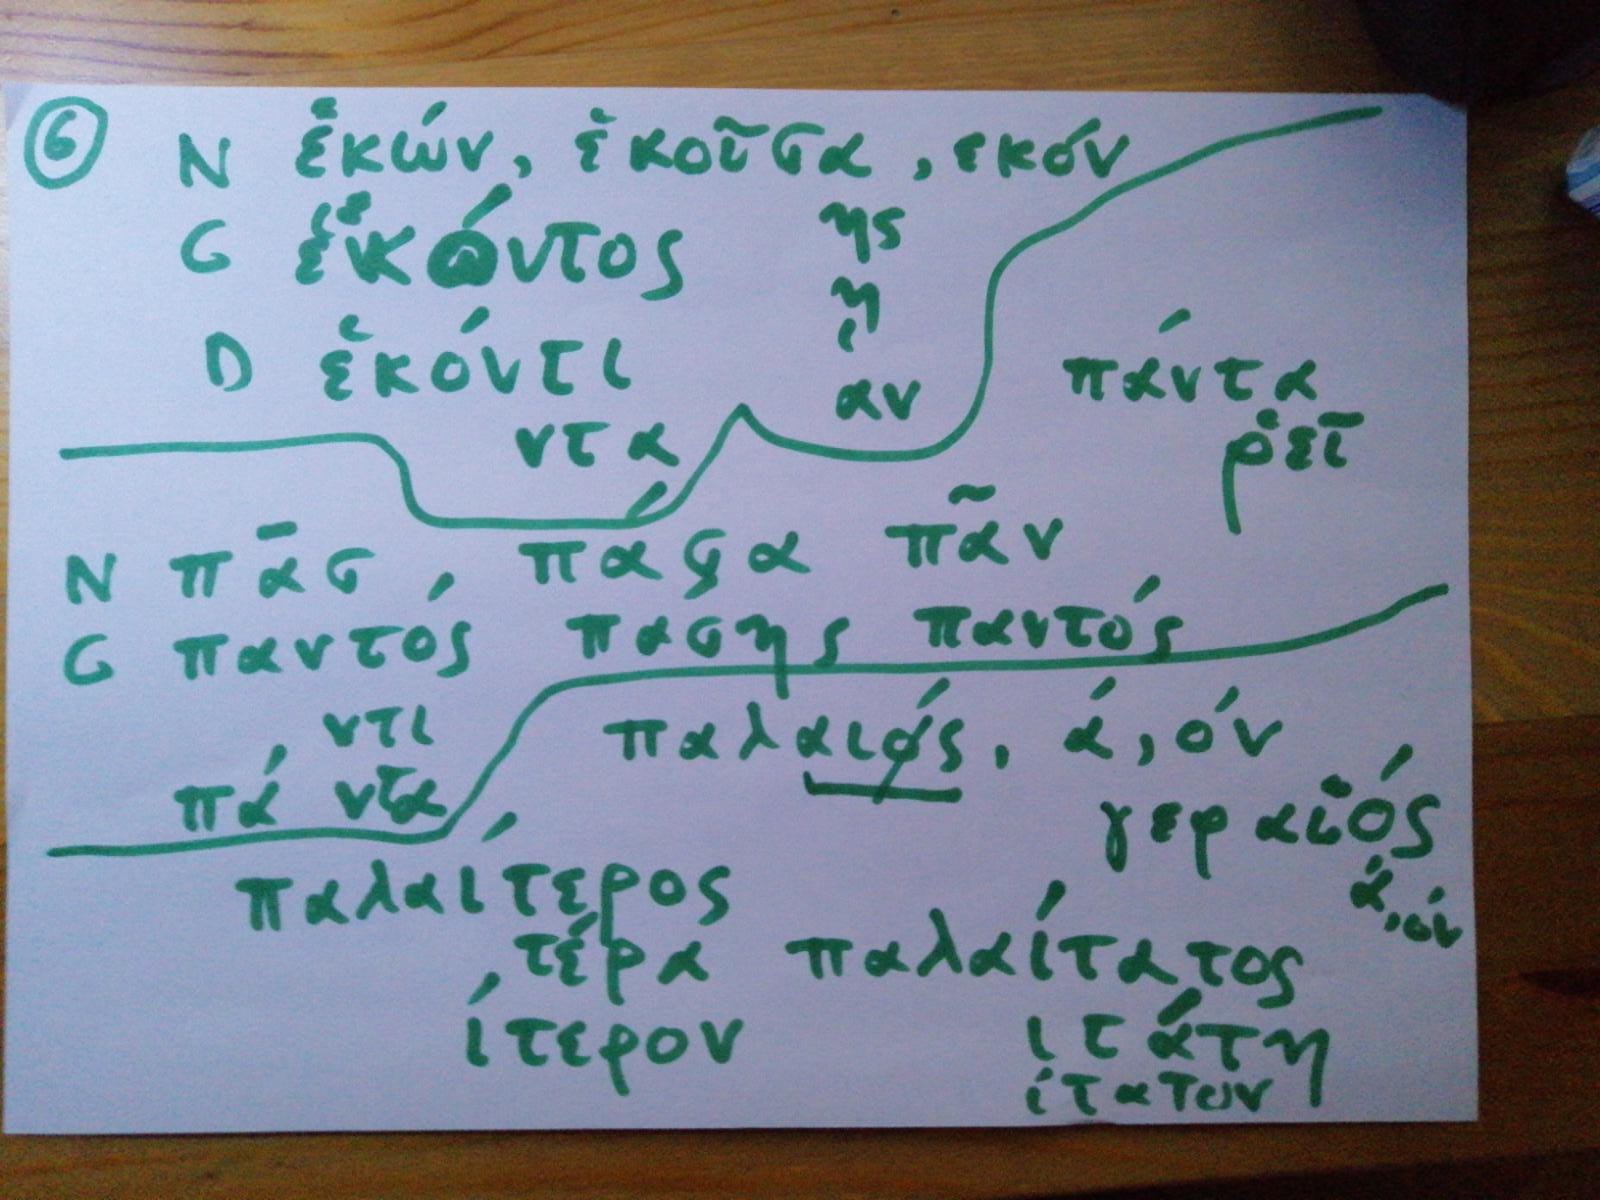 6 N ἑκών, ἑκοῦσα, εκόν
G ἑκόντος ης
ῃ
D ἑκόντι αν
ντα
πάντα
ῥεῖ
N πᾶς, πάσα πᾶν
G παντός πάσης παντός
ντι
πάντα
παλαιός, ά, όν
γεραιός
ά, όν
παλαίτερος
τέρα
ίτερον
παλαίτατος
ιτάτη
ίτατον